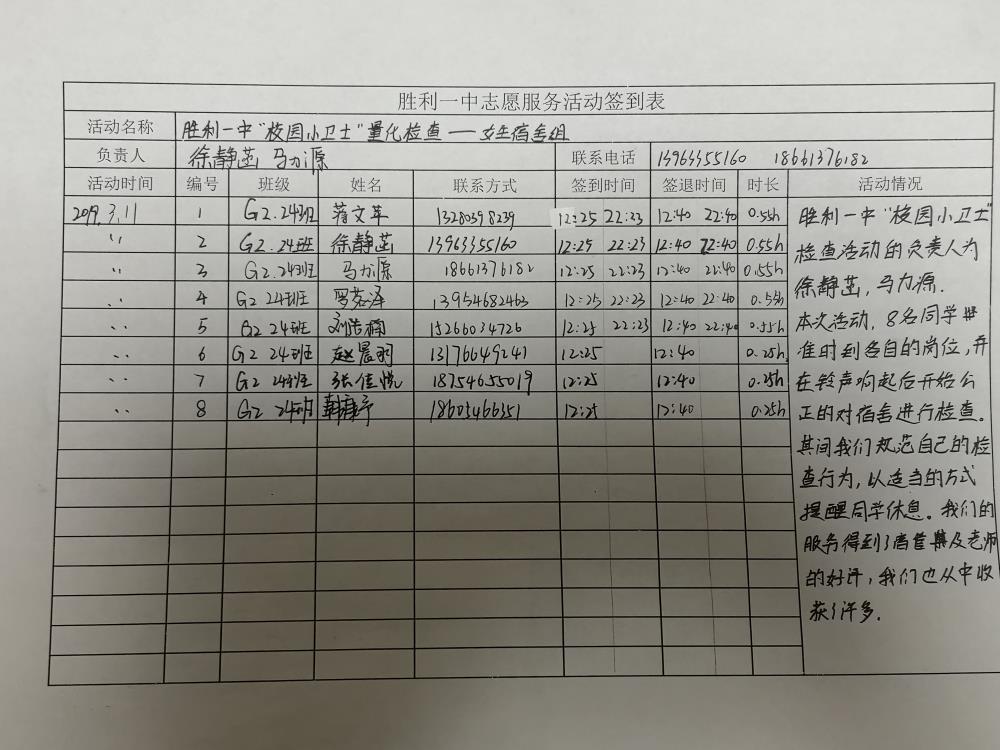 胜利一中志愿服务活动签到表
活动名称 胜利一中“校园小卫士”量化检查——女生宿舍组
负责人 徐静茁 马力源 联系电话 13963355160 18661376182
活动时间 编号 班级 姓名 联系方式 签到时间 签退时间 时长 活动情况
2019.3.11 1 G2.24班 蒋文苹 13280598239 12:25 22:23 12:40 22:40 0.55h
〃 2 G2.24班 徐静茁 13963355160 12:25 22:23 12:40 22:40 0.55h
〃 3 G2.24班 马力源 18661376182 12:25 22:23 12:40 22:40 0.55h
〃 4 G2 24班 罗茗泽 13954682463 12:25 22:23 12:40 22:40 0.55h
〃 5 G2 24班 刘浩楠 15266034726 12:25 22:23 12:40 22:40 0.55h
〃 6 G2 24班 赵晨羽 13176649241 12:25 12:40 0.25h
〃 7 G2 24班 张佳悦 18754655019 12:25 12:40 0.25h
〃 8 G2 24班 18605466351 12:25 12:40 0.25h
胜利一中“校园小卫士”
检查活动的负责人为
徐静茁,马力源.
本次活动,8名同学
准时到各自的岗位,并
在铃声响起后开始公
正的对宿舍进行检查。
其间我们规范自己的检
查行为,以适当的方式
提醒同学休息。我们的
服务得到了宿管及老师
的好评,我们也从中收
获了许多.